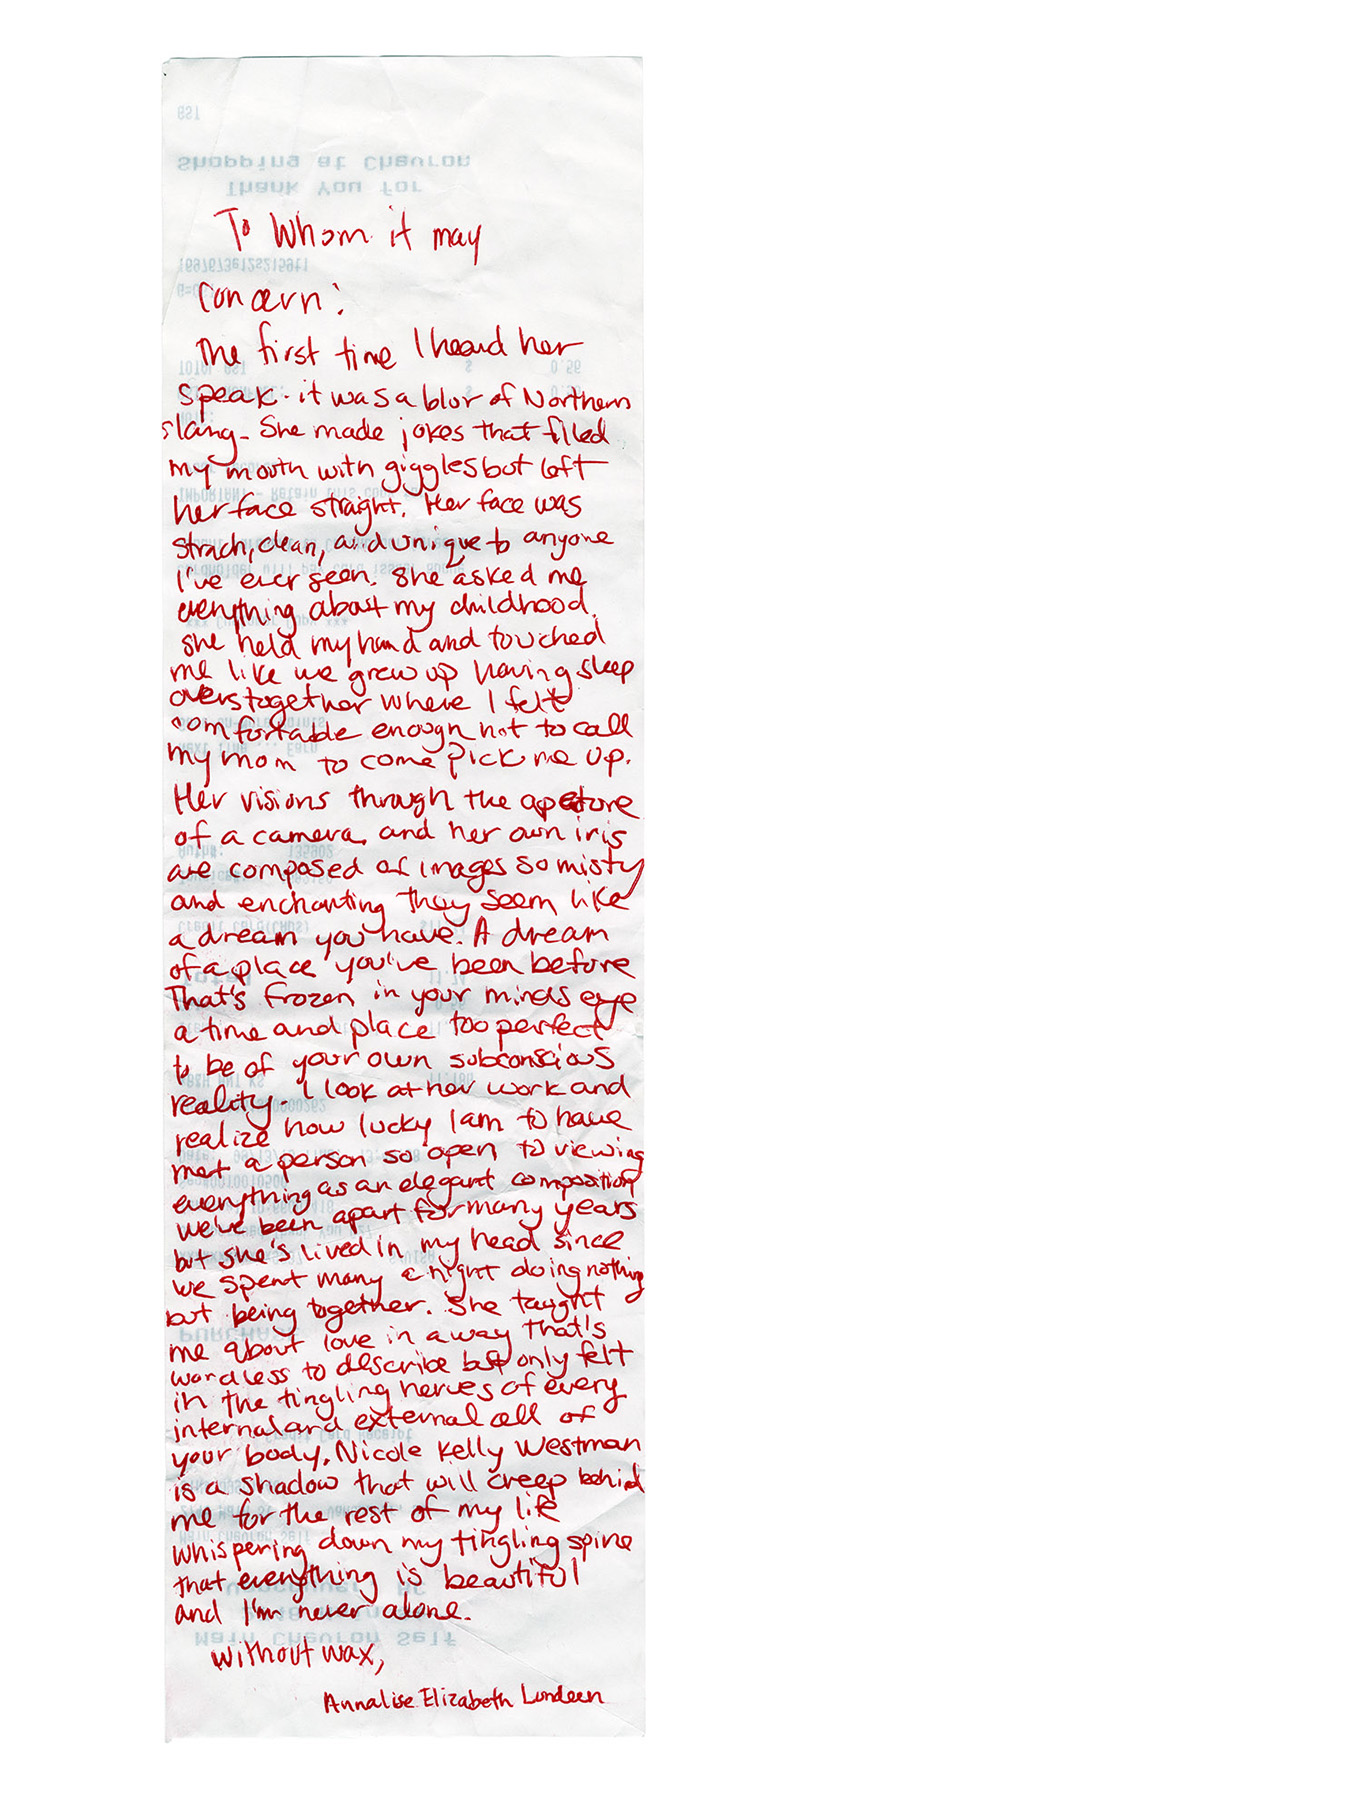 To Whom it may
Concern:
The first time I heard her
speak. it was a blur of Northern
slang. She made jokes that filled
my mouth with giggles but left
her face straight. Her face was
strach, clean, and unique to anyone
I've ever seen. She asked me
everything about my childhood.
she held my hand and touched
me like we grew up having sleep
overs together where I felt
comfortable enough not to call
my mom to come pick me up.
Her visions through the aperture
of a camera, and her own iris
are composed of images so misty
and enchanting they seem like
a dream you have. A dream
of a place you've been before
That's frozen in your minds eye
a time and place too perfect
to be of your own subconscious
reality. I look at her work and
realize how lucky I am to have
met a person so open to viewing
everything as an elegant composition
we've been apart for many years
but she's lived in my head since
we spent many a night doing nothing
but being together. She taught
me about love in a way that's
wordless to describe but only felt
in the tingling nerves of every
internal and external cell of
your body. Nicole Kelly Westman
is a shadow that will creep behind
me for the rest of my life
whispering down my tingling spine
that everything is beautiful
and I'm never alone.
without wax,
Annalise Elizabeth Lundeen